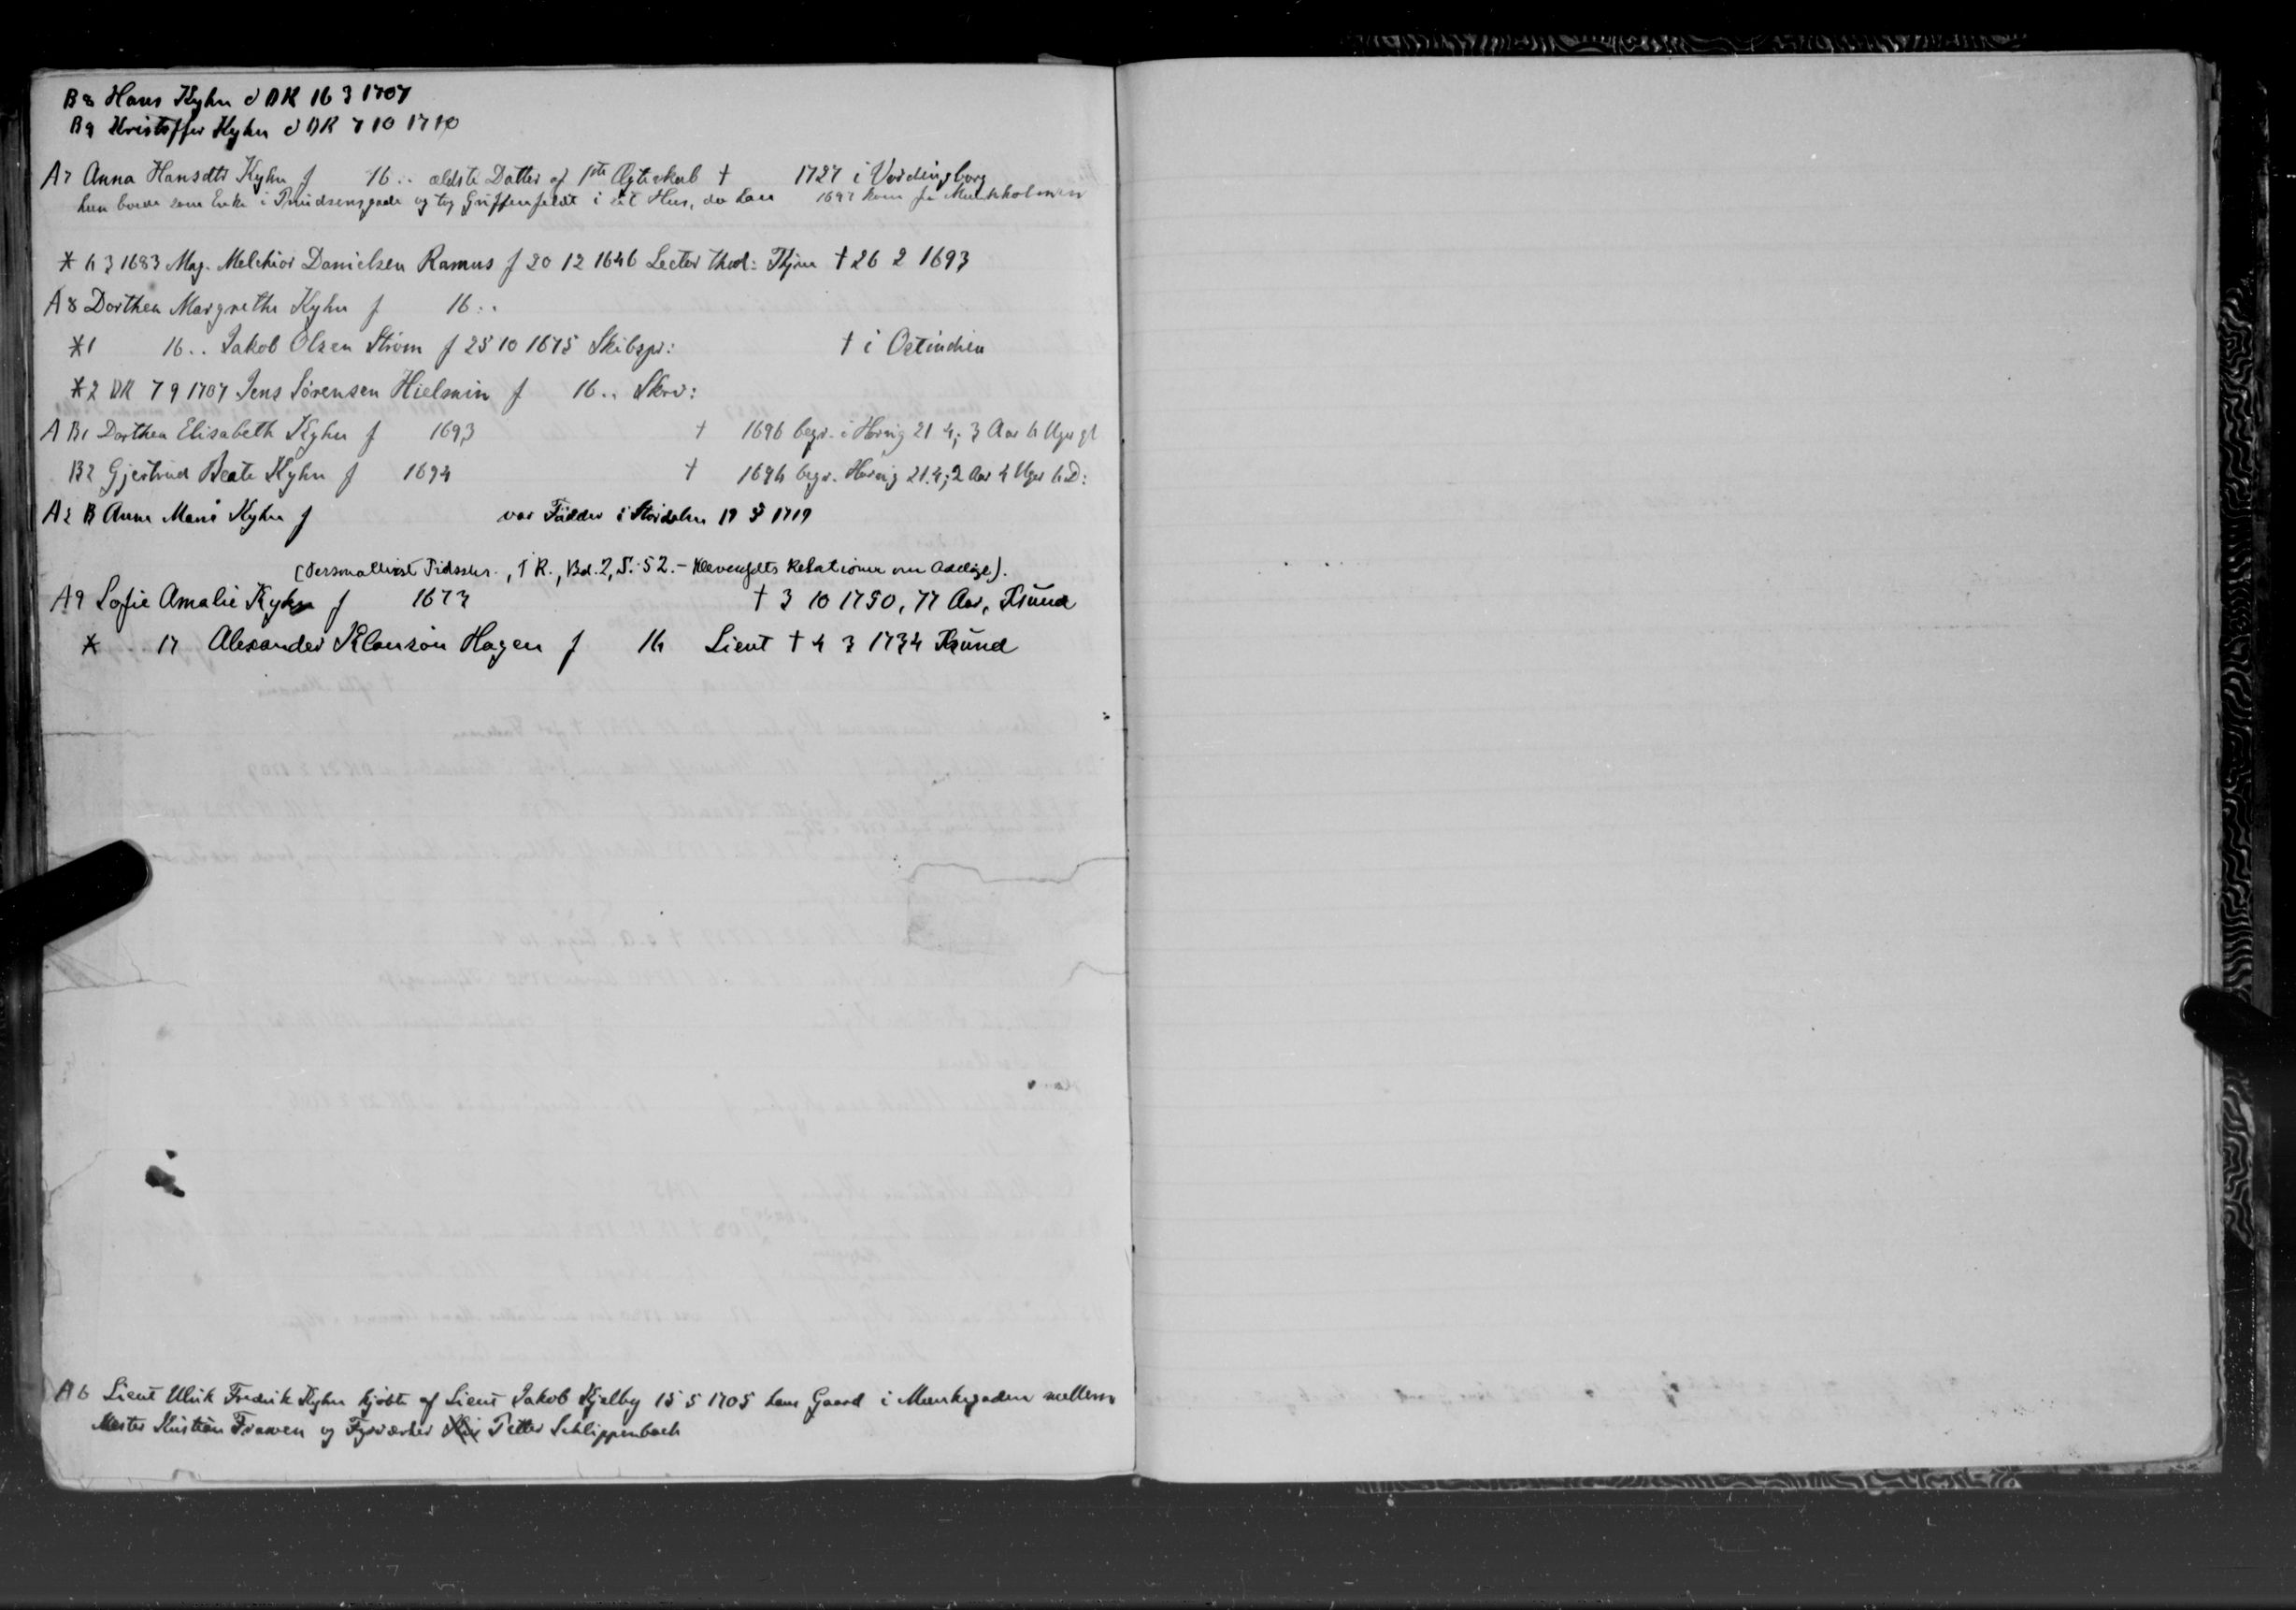 B8 Hans Kyhn d DK 16 3 1707
B9 Kristoffer Kyhn d DK 7 10 1710
A7 Anna Hansdtr Kyhn f 16.. ældste Datter af 1ste Ægteskab † 1727 i Vordingborg
hun boede som Enke i og tog Griffenfeldt i sit Hus, da han 1697 kom fra Munkholmen
* 6 3 1683 Mag. Melchior Danielsen Ramus f 20 12 1646 Lector theol: Thjm † 26 2 1693
A8 Dorthea Margrethe Kyhn f 16..
*1 16.. Jakob Olsen Strøm f 25 10 1675 Skibspr: † i Ostindien
*2 DK 7 9 1707 Jens Sørensen Hielmin f 16.. Skrv:
A B1 Dorthea Elisabeth Kyhn f 1693 † 1696 begr. i 21 4; 3 Aar 6 Uger gl
B2 Gjertrud Beate Kyhn f 1694 † 1696 begr. 21.4; 2 Aar 4 Uger 6 D:
A2 B Anna Marie Kyhn f var Fadder i Stördalen 19 3 1719
(Personalhist Tidsskr., 1 R., Bd. 2, S. 52. - Klevenfeldts Relationer om Adelige).
A9 Sofie Amalie Kyhn f 1673 † 3 10 1750, 77 Aar, Krsund
* 17 Alexander Klauson Hagen f 16 Lieut † 4 3 1734 Krsund
A6 Lieut Ulrik Fredrik Kyhn kjøbte af Lieut Jakob Kjelby 15 5 1705 hans Gaard i Munkegaden mellem
Mester Kristian Frawen og Fyrværker Petter Schlippenbach